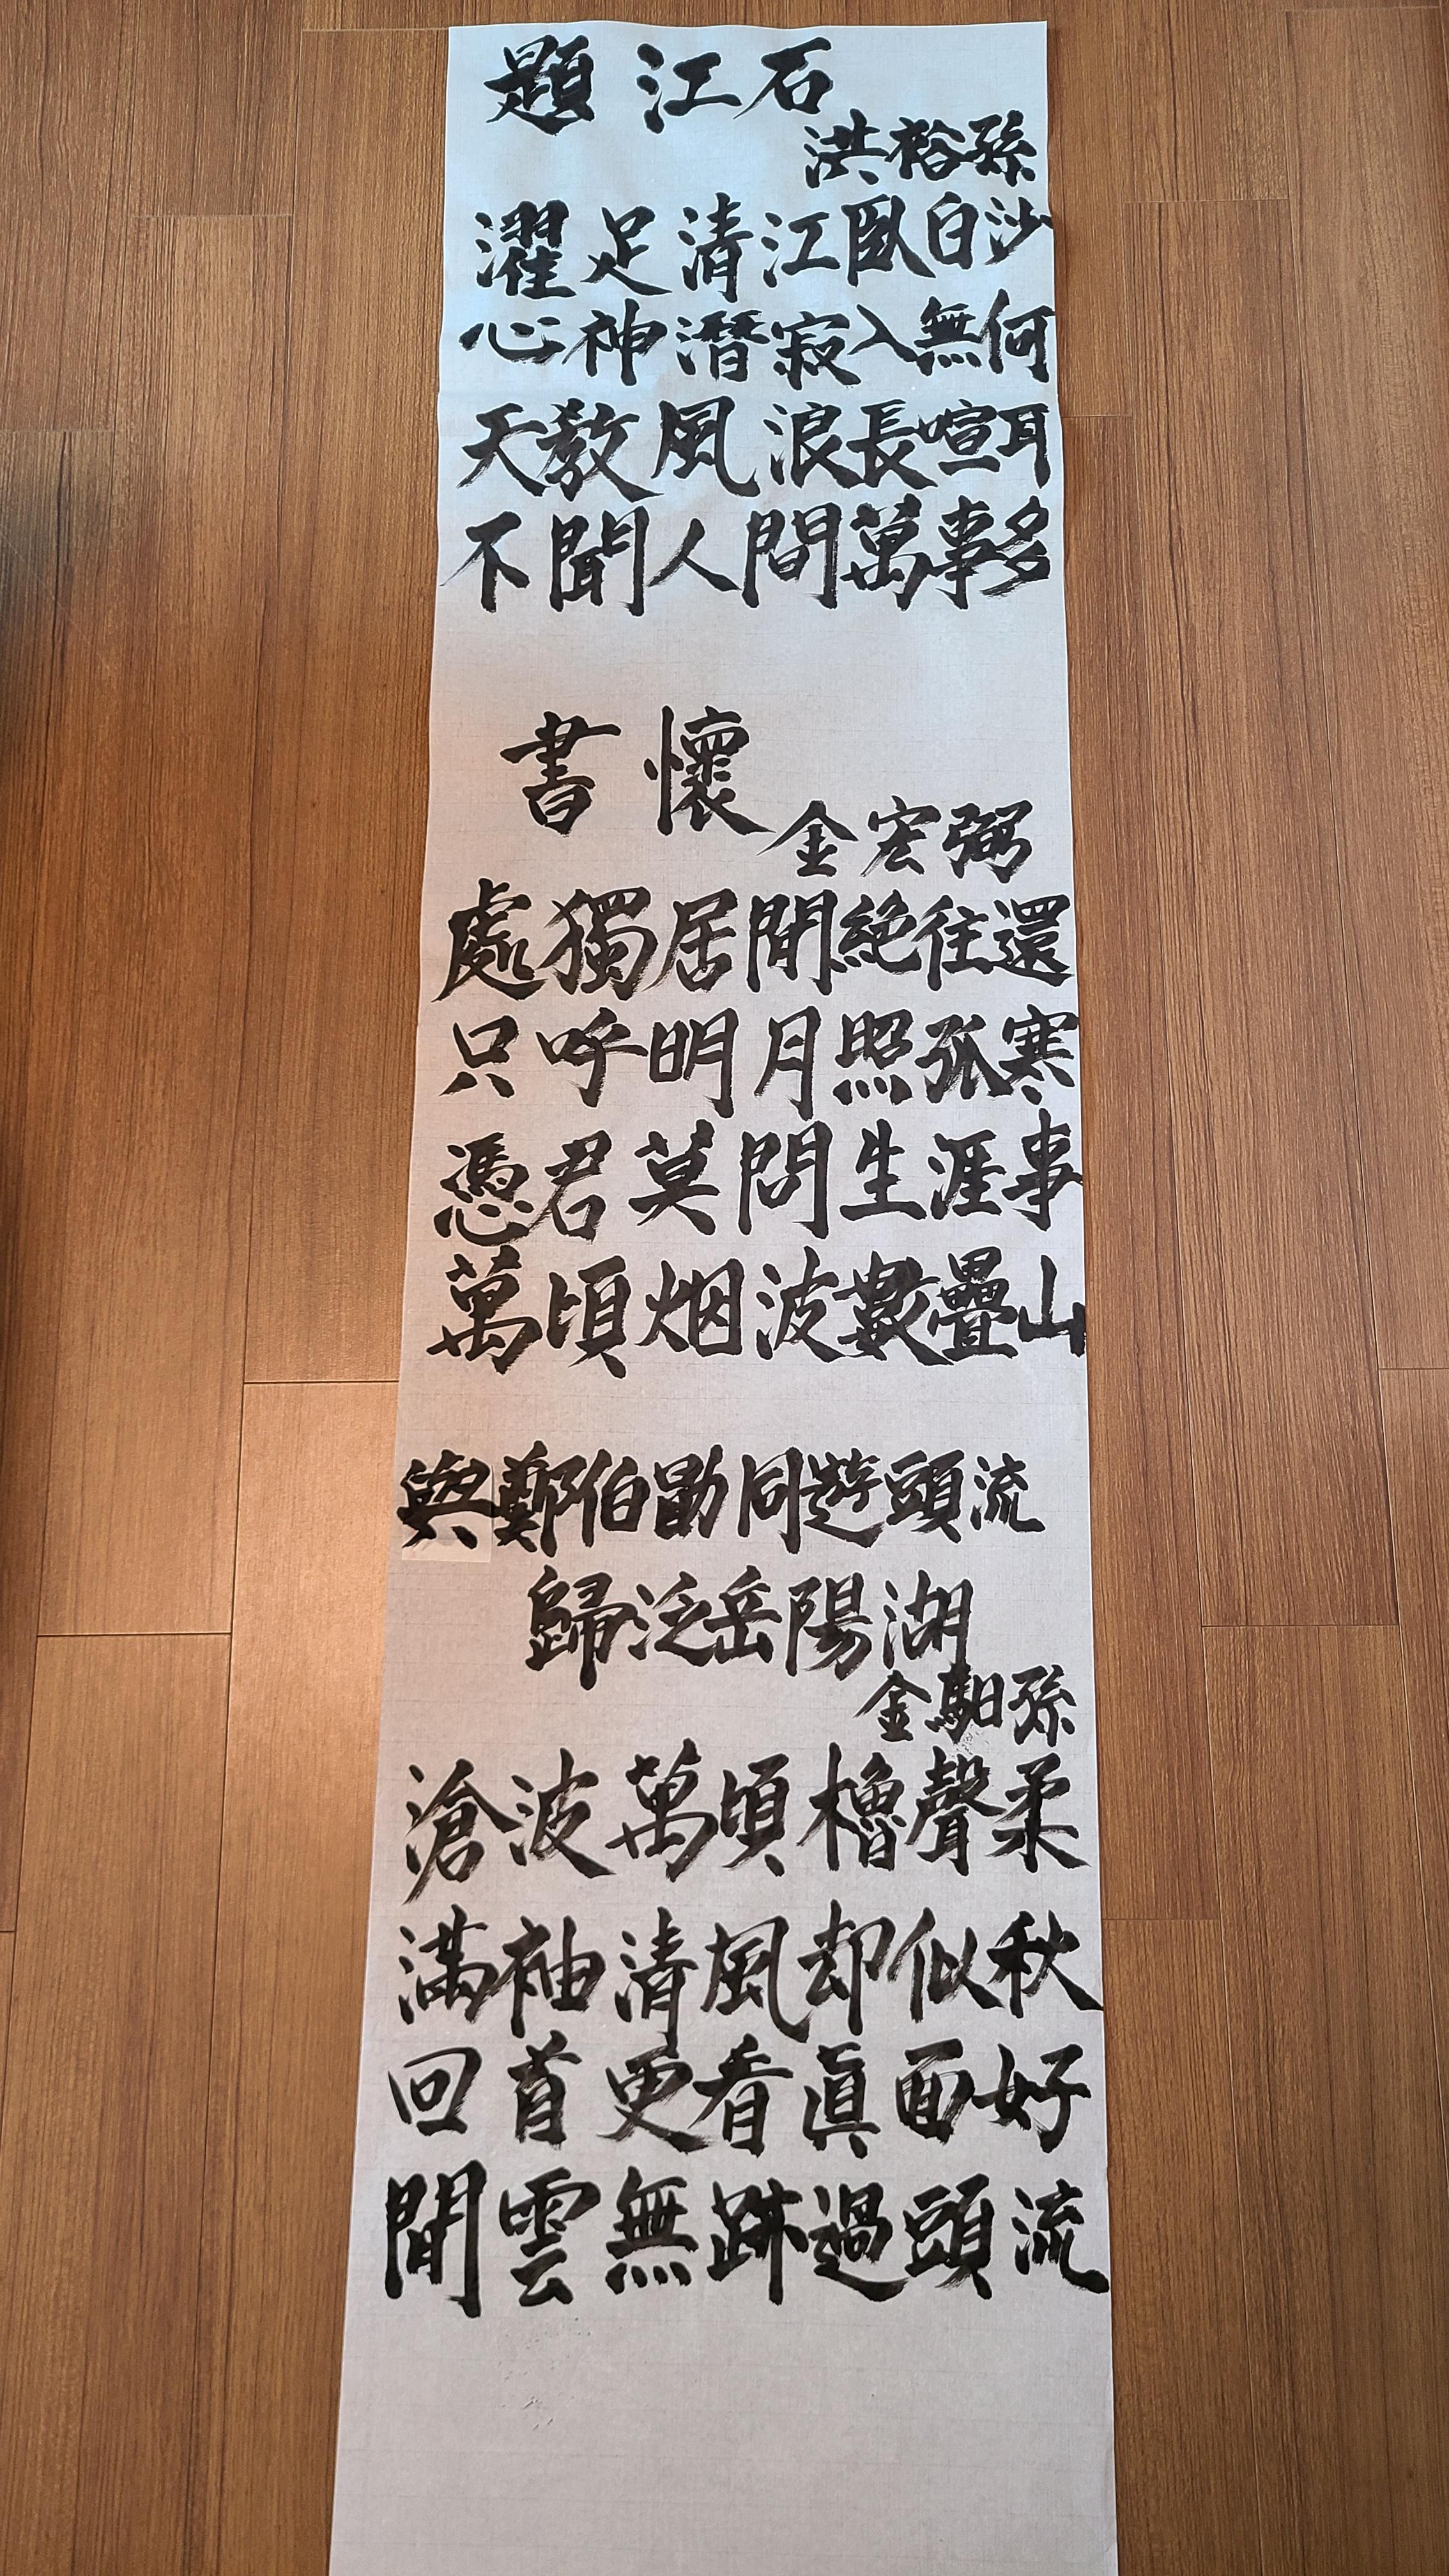 題江石
洪裕孫
濯足清江臥白沙
心神潛寂入無何
天教風浪長喧耳
不聞人間萬事多
書懷
金宏弼
處獨居閒絶往還
只呼明月照孤寒
憑君莫問生涯事
萬頃烟波數疊山
與鄭伯勖同遊頭流
歸泛岳陽湖
金馹孫
滄波萬頃櫓聲柔
滿袖清風却似秋
回首更看眞面好
閒雲無跡過頭流